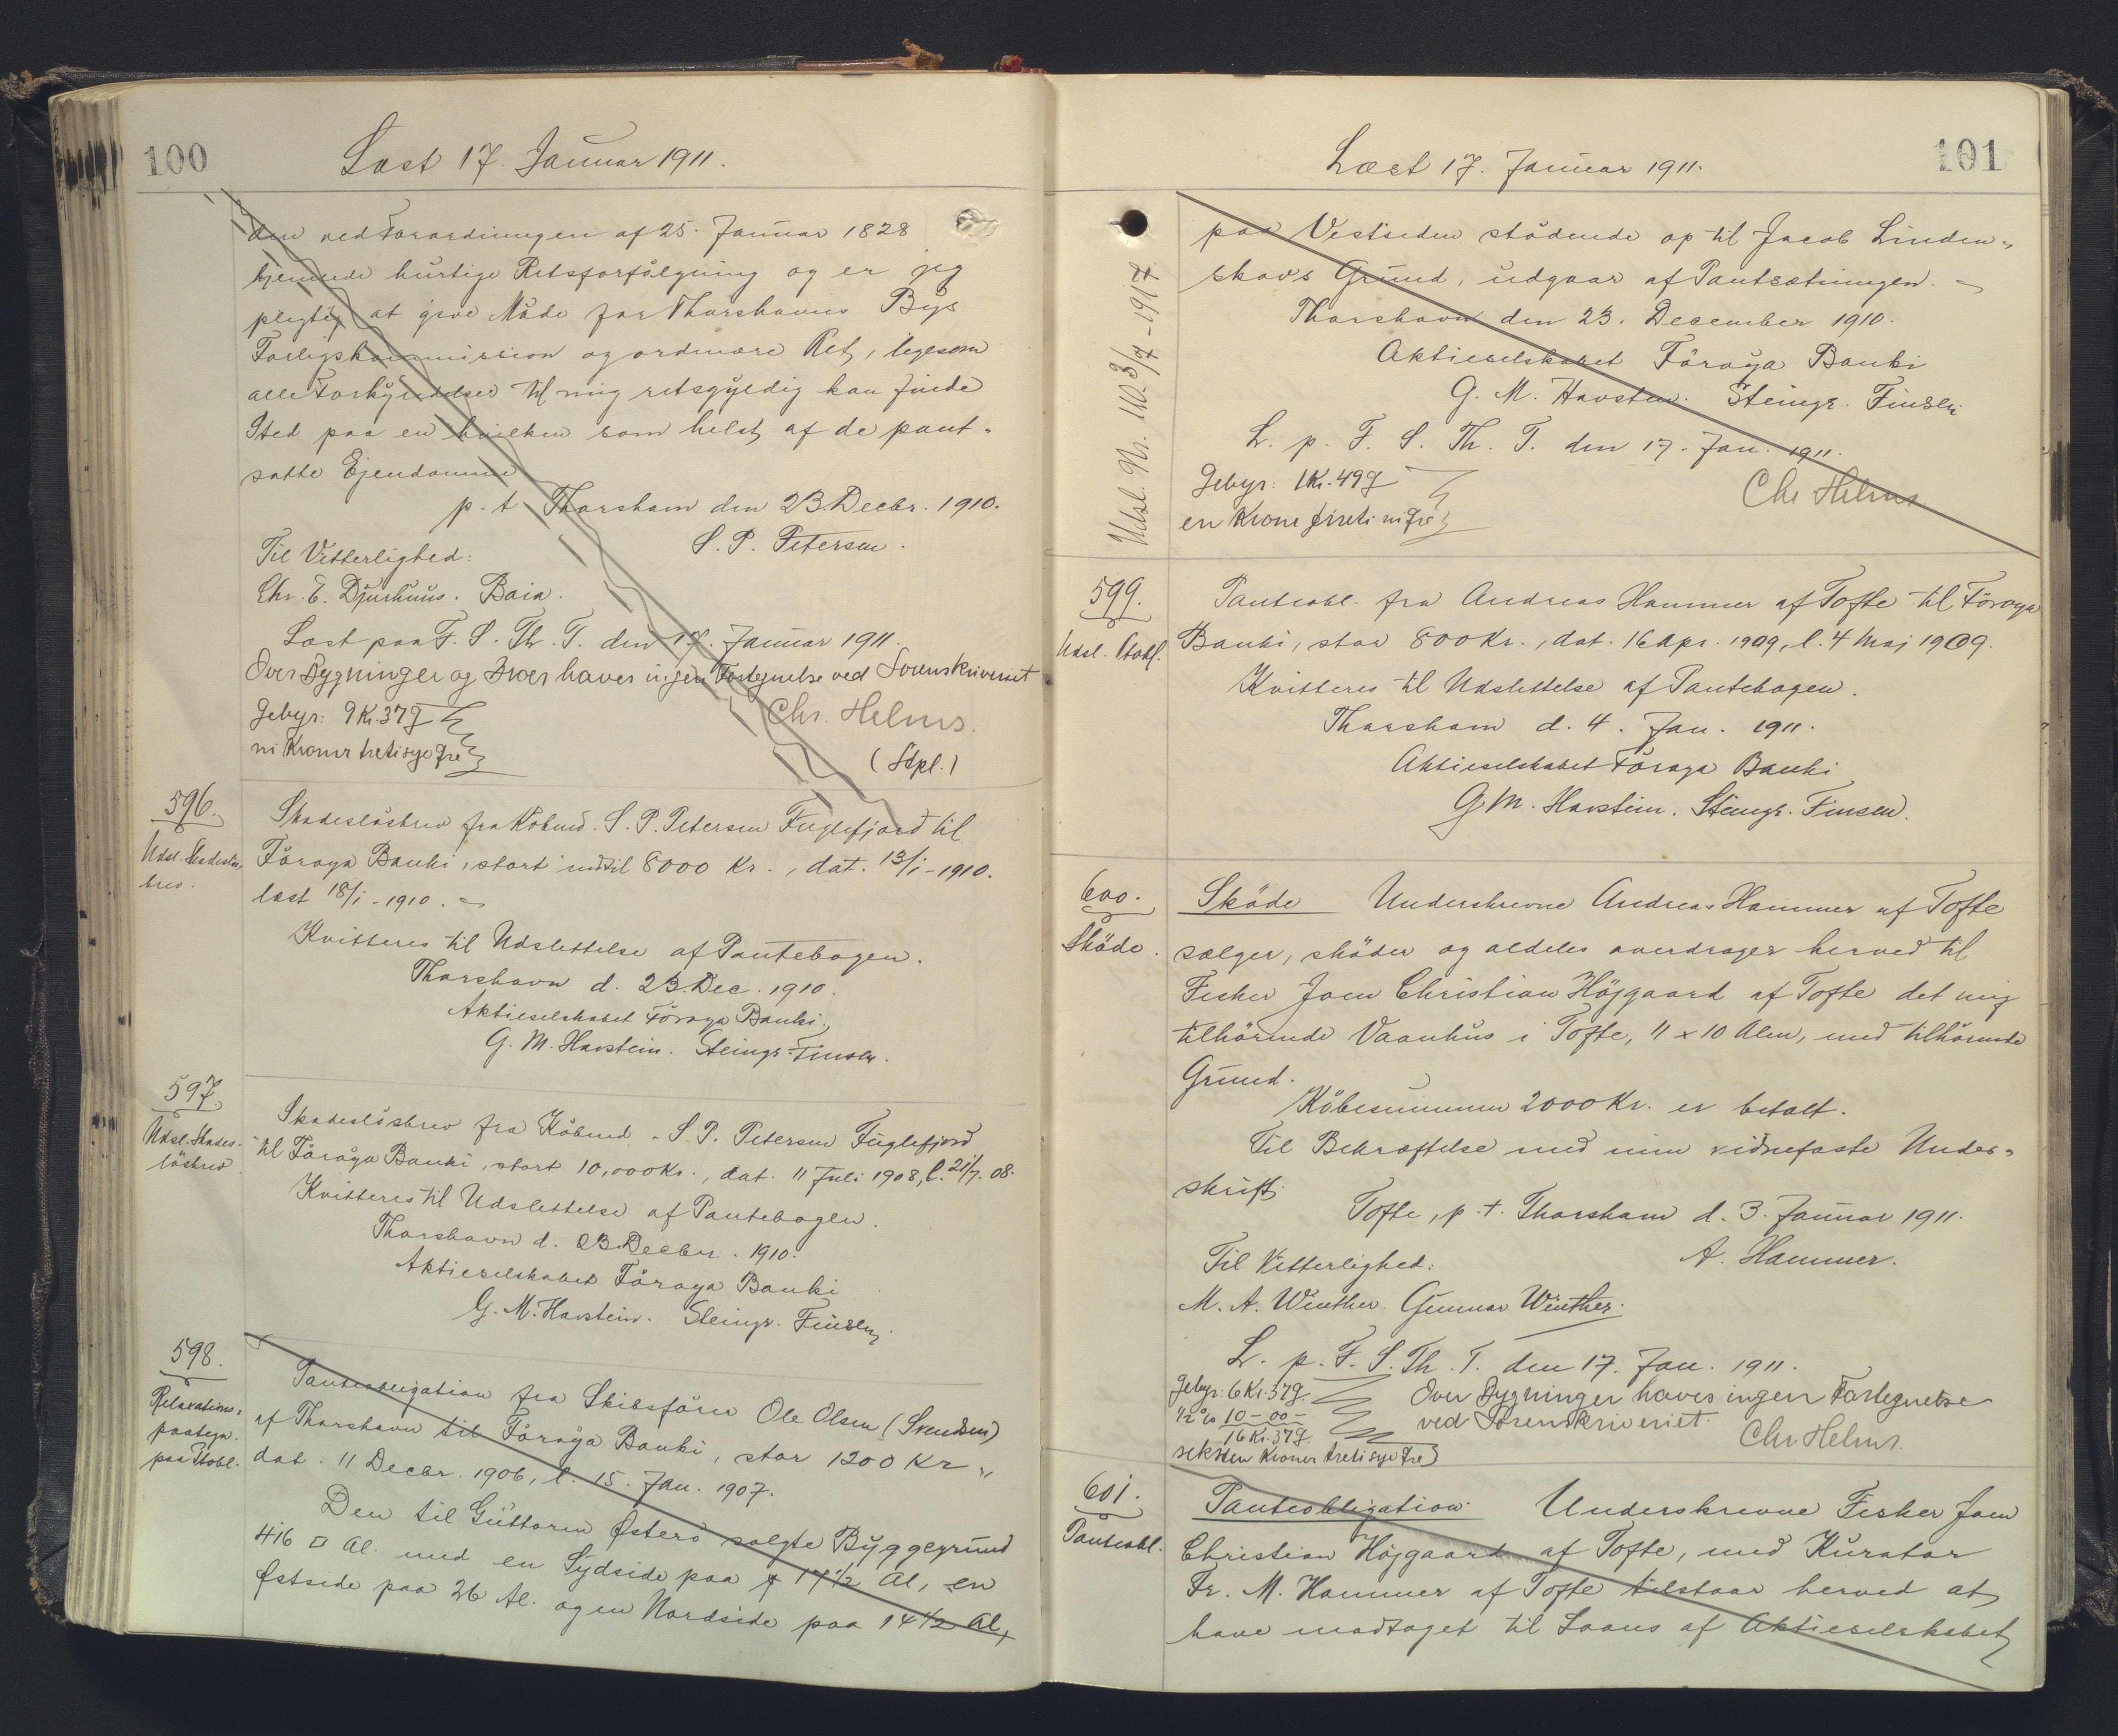 100
Læst 17. Januar 1911.
den ved Forordningen af 25. Januar 1828
hjemlede hurtige Retsforfølgning og er jeg
pligtig at give Møde for Thorshavns Bys
Forligskommission og ordinære Ret, ligesom
alle Forkyndelser til mig retsgyldig kan finde
Sted paa en hvilken som helst af de pant-
satte Ejendomme
p. t. Thorshavn den 23 Decbr. 1910.
S. P. Petersen.
Til Vitterlighed:
Chr. E. Djurhuus. Baia.
Læst paa F. S. Th. T. den 17. Januar 1911.
Over Bygninger og Lver haves ingen Fortegnelse ved Sorenskriveriet
Gebyr: 9 Kr. 37 Ø
ni Kroner tretisyv Øre
Chr. Helms.
(Stpl.)
596.
Udsl. Skadesløs-
brev.
Skadesløsbrev fra Købmd. S. P. Petersen Fuglefjord til
Föroya Banki, stort indtil 8000 Kr., dat. 13/1-1910.
læst 18/1-1910. =
Kvitteres til Udslettelse af Pantebogen.
Thorshavn d. 23. Dec. 1910.
Aktieselskabet Föroya Banki.
G. M. Havstein. Steingr. Finsen.
597.
Udsl. Skades-
løsbrev
Skadesløsbrev fra Købmd. S. P. Petersen Fuglefjord
til Föroya Banki, stort 10,000 Kr., dat. 11 Juli 1908, l. 21/7. 08.
Kvitteres til Udslettelse af Pantebogen.
Thorshavn d. 23 Decbr. 1910.
Aktieselskabet Föroya Banki
G. M. Havstein. Steingr. Finsen.
598.
Relaxations-
paategn.
paa Ptobl.
Panteobligation fra Skibsfører Ole Olsen (Svendsen)
af Thorshavn til Föroya Banki, stor 1200 Kr
dat. 11 Decbr. 1906, l. 15. Jan. 1907.
Den til Guttorm Østerø solgte Byggegrund
416 □ Al. med en Sydside paa 17 1/2 Al, en
Østside paa 26 Al. og en Nordside paa 14 1/2 Al,
101
Læst 17. Januar 1911.
Udsl. Nr. 110 3/7-1917
paa Vestsiden stødende op til Jacob Linden-
skovs Grund, udgaar af Pantsætningen. =
Thorshavn den 23. December 1910.
Aktieselskabet Föroya Banki
G. M. Havstein. Steingr. Finsen
L. p. F. S. Th. T. den 17. Jan. 1911.
Gebyr: 1 Kr. 49 Ø
en Krone firreti ni Øre
Chr Helms
599.
Udsl. Ptobl.
Panteobl. fra Andreas Hammer af Tofte til Föroya
Banki, stor 800 Kr., dat. 16 Apr. 1909, l. 4 Maj 1909.
Kvitteres til Udslettelse af Pantebogen.
Thorshavn d. 4. Jan. 1911.
Aktieselskabet Föroya Banki
G. M. Havstein. Steingr. Finsen.
600.
Skøde.
Skøde Underskrevne Andreas Hammer af Tofte
sælger, skøder og aldeles overdrager herved til
Fisker Joen Christian Höjgaard af Tofte det mig
tilhørende Vaanhus i Tofte, 11 x 10 Alen, med tilhørende
Grund.
Købesummen 2000 Kr. er betalt.
Til Bekræftelse med min vidnefaste Under-
skrift.
Tofte, p. t. Thorshavn d. 3. Januar 1911.
A. Hammer.
Til Vitterlighed:
M. A. Winther. Gunnar Winther.
L. p. F. S. Th. T. den 17. Jan. 1911.
Gebyr: 6 Kr. 37 Ø.
1/2 % 10 - 00 -
16 Kr. 37 Ø.
seksten Kroner tretisyv Øre
Over Bygninger haves ingen Fortegnelse
ved Sorenskriveriet.
Chr Helms.
601.
Panteobl.
Panteobligation Underskrevne Fisker Joen
Christian Höjgaard af Tofte, med Kurator
Fr. M. Hammer af Tofte tilstaar herved at
have modtaget til Laans af Aktieselskabet